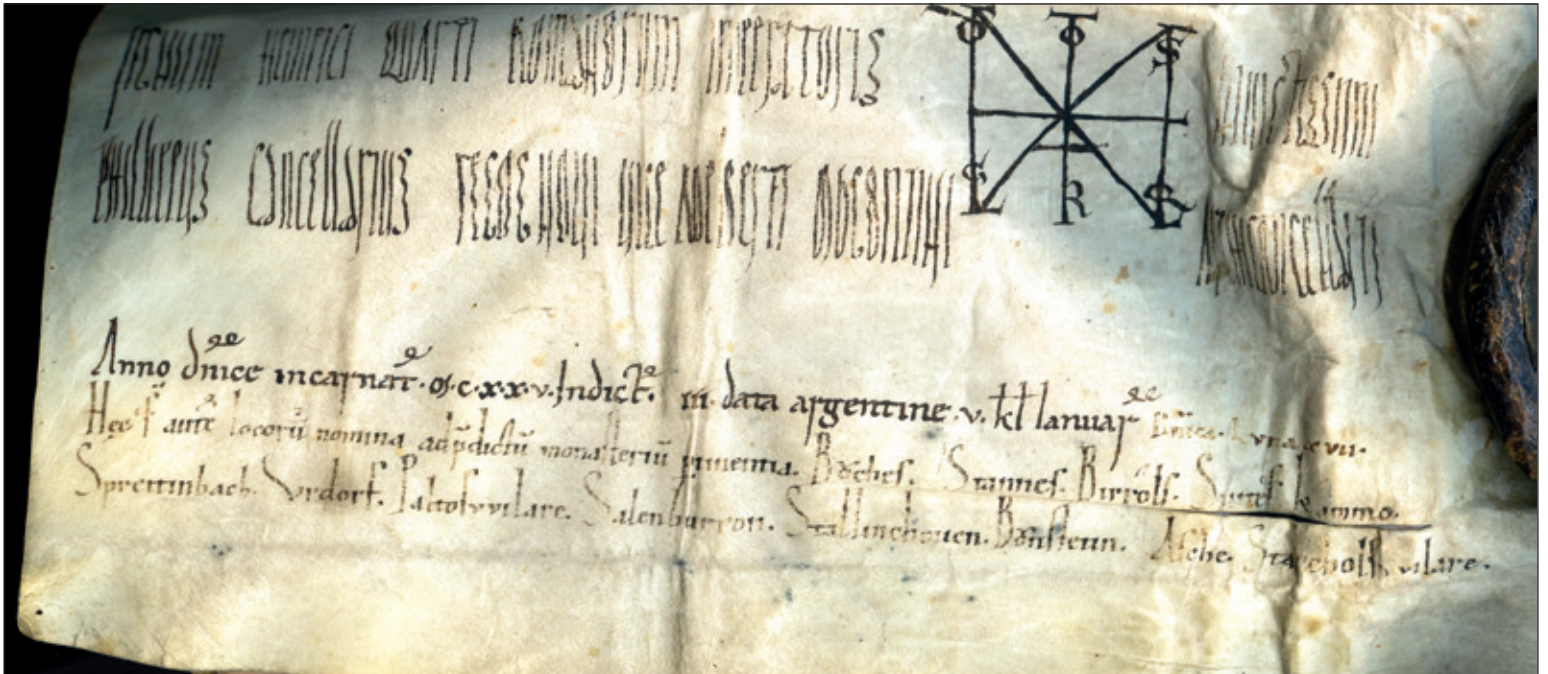 signum heinrici quarti romanorum imperatoris [monogram] invictissimi
philippus cancellarius recognovi vice adelberti archicancellarii
Anno dnicę incarnat. M.c.xx.v. Indict. iii. data argentine .v. kł Ianuar Dnica. Luna xvii.
Hęc st̄ aute locorū nomina ad p̄dictū monasteriū ptinentia. Bůches. Stannes. Birrols. kammo.
Sprettinbach. Vrdorf. Paltosvvilare. Salenburron. Stallinchouen. Bonstetin. Asche. Starcholfsvvilare.